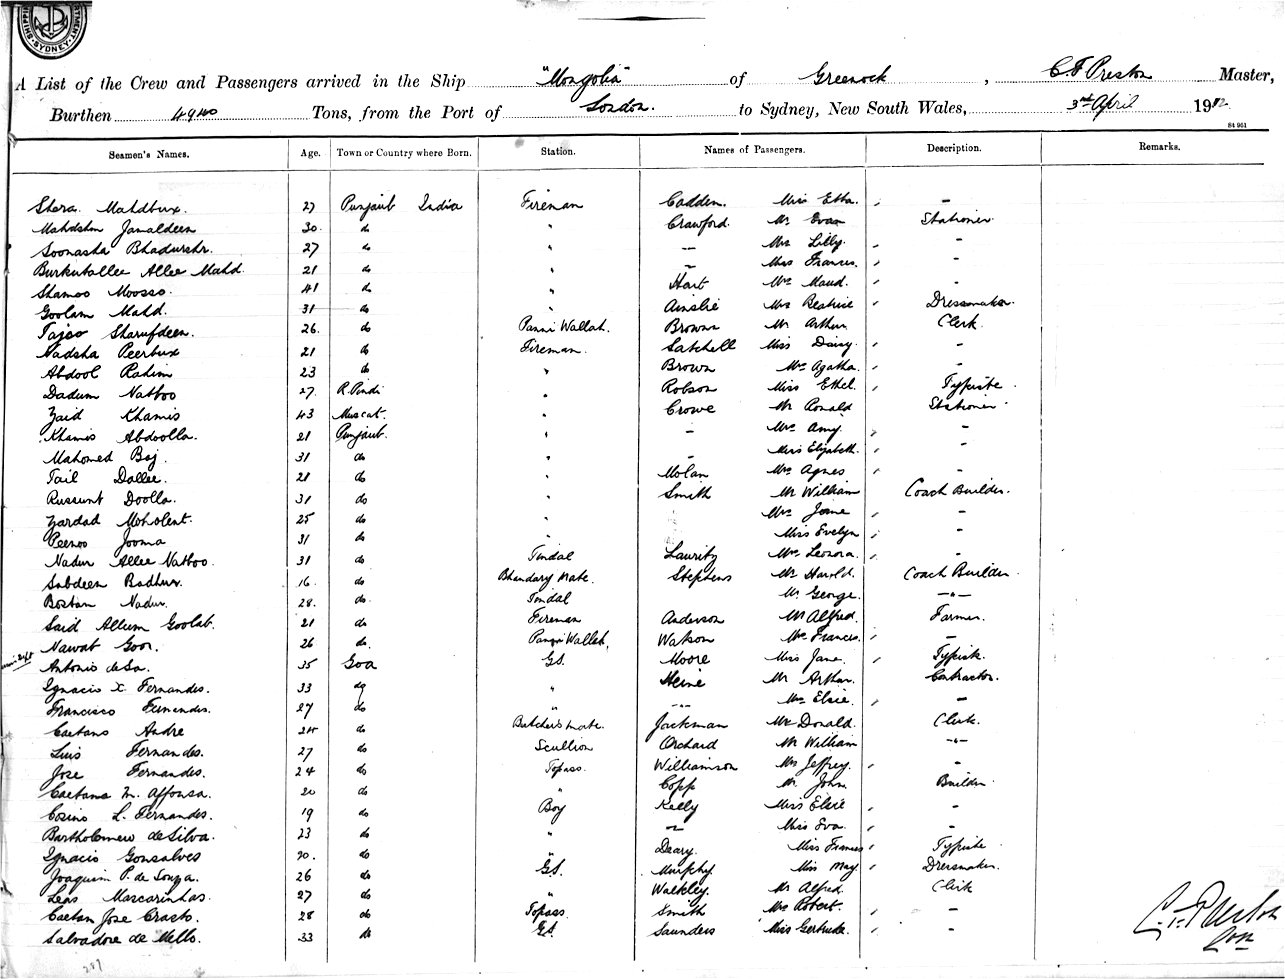 SHIPPING DEPARTMENT. SYDNEY
A List of the Crew and Passengers arrived in the Ship "Mongolia" of Greenock, C F Preston Master,
Burthen 4940 Tons, from the Port of London. to Sydney, New South Wales, 3rd April 1912.
84 961
Seamen's Names. Age. Town or Country where Born. Station. Names of Passengers. Description. Remarks.
Shera Mahdbux. 27 Punjaub India Fireman Cadden. Miss Etha. -
Mahdshm Jamaldeen 30. do " Crawford. Mr Evan Stationer
Soonasha Bhadurshr. 27 do " — Mrs Lilly. -
Burkutallee Allee Mahd. 21 do " — Miss Frances. -
Shamoo Moosso. 41 do " Hart Mrs Maud. -
Goolam Mahd. 31 do " Ainslie Mrs Beatrice Dressmaker.
Tajoo Sharufdeen. 26. do Panni Wallah. Brown Mr Arthur Clerk.
Nadsha Peerbux 21 do Fireman. Satchell Miss Daisy. -
Abdool Rahim 23 do " Brown Mrs Agatha. -
Dadum Nathoo 27. R. Pindi " Robson Miss Ethel. Typiste
Zaid Khamis 43 Muscat. " Crowe Mr Ronald Stationer
Khamis Abdoolla. 21 Punjaub. " - Mrs Amy. -
Mahomed Boj. 31 do " - Miss Elizabeth. -
Tail Dallee. 21 do " Molan Mrs Agnes -
Russunt Doolla. 31 do " Smith Mr William Coach Builder.
Zardad Moholent. 25 do " Mrs Jane -
Peenoo Jooma 31 do " Miss Evelyn -
Nadur Allee Nathoo. 31 do Tindal Lauritz Mrs Leonora. -
Sabdeen Badhur. 16. do Bhandary Mate. Stephens Mr Harold. Coach Builder
Bostan Nadur. 28. do. Tindal Mr George. —"—
Said Allum Goolab. 21 do Fireman Anderson Mr Alfred. Farmer.
Nawab Goor. 26 do. Panni Wallah, Watson Mrs Frances. —
Antonio de Sa. 35 Goa G.S. Moore Miss Jane. Typiste.
Ignacio X. Fernandes. 33 do " Heine Mr Arthur. Contractor.
Francisco Fernandes. 27 do " - - Mrs Elsie. -
Caetano Andre 24 do Butcher's mate. Jackman Mr Donald. Clerk.
Luis Fernandes. 27 do Scullion Orchard Mr William —"—
Jose Fernandes. 24 do Topass. Williamson Mrs Jeffrey. -
Caetano M. Affonsa. 20 do " Copp Mr John. Builder
Cosino L. Fernandes. 19 do Boy Kelly Miss Elsie -
Bartholomew de Silva. 23 do " — Miss Eva. -
Ignacio Gonsalves 20. do Deary. Miss Frances Typiste
Joaquim P. de Souza. 26 do G.S. Murphy Miss May. Dressmaker.
Leas Mascarinhas. 27 do " Walkley. Mr Alfred. Clerk
Caetan Jose Crasto. 28 do Topass. Smith Mrs Robert. -
Salvadore de Mello. 33 do G.S. Saunders Miss Gertrude. -
C. F. Preston
Com
287